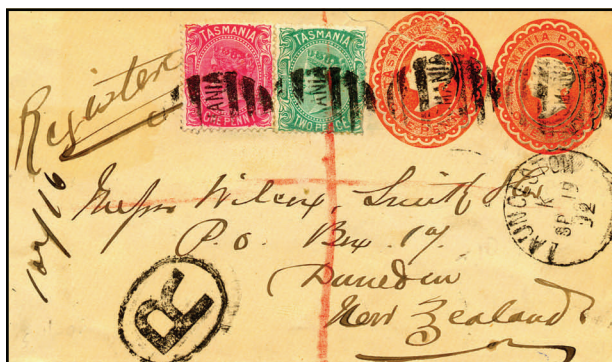 TASMANIA
ONE PENNY
TASMANIA
TWO PENCE
TASMANIA POST
TASMANIA POST
Register
Messrs Wilcox, Smith &
P.O. Box 17.
Dunedin
New Zealand
R
LAUNCESTON
SP 19
92